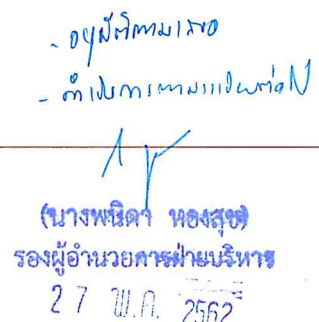 - อนุมัติตามเสนอ
- ดำเนินการตามระเบียบต่อไป
(นางพนิดา ทองสุข)
รองผู้อำนวยการฝ่ายบริหาร
27 พ.ค. 2562